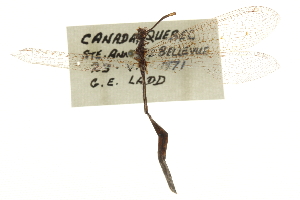 CANADA, QUEBEC
STE. ANNE BELLEVUE
23 1971
G. E. LADD